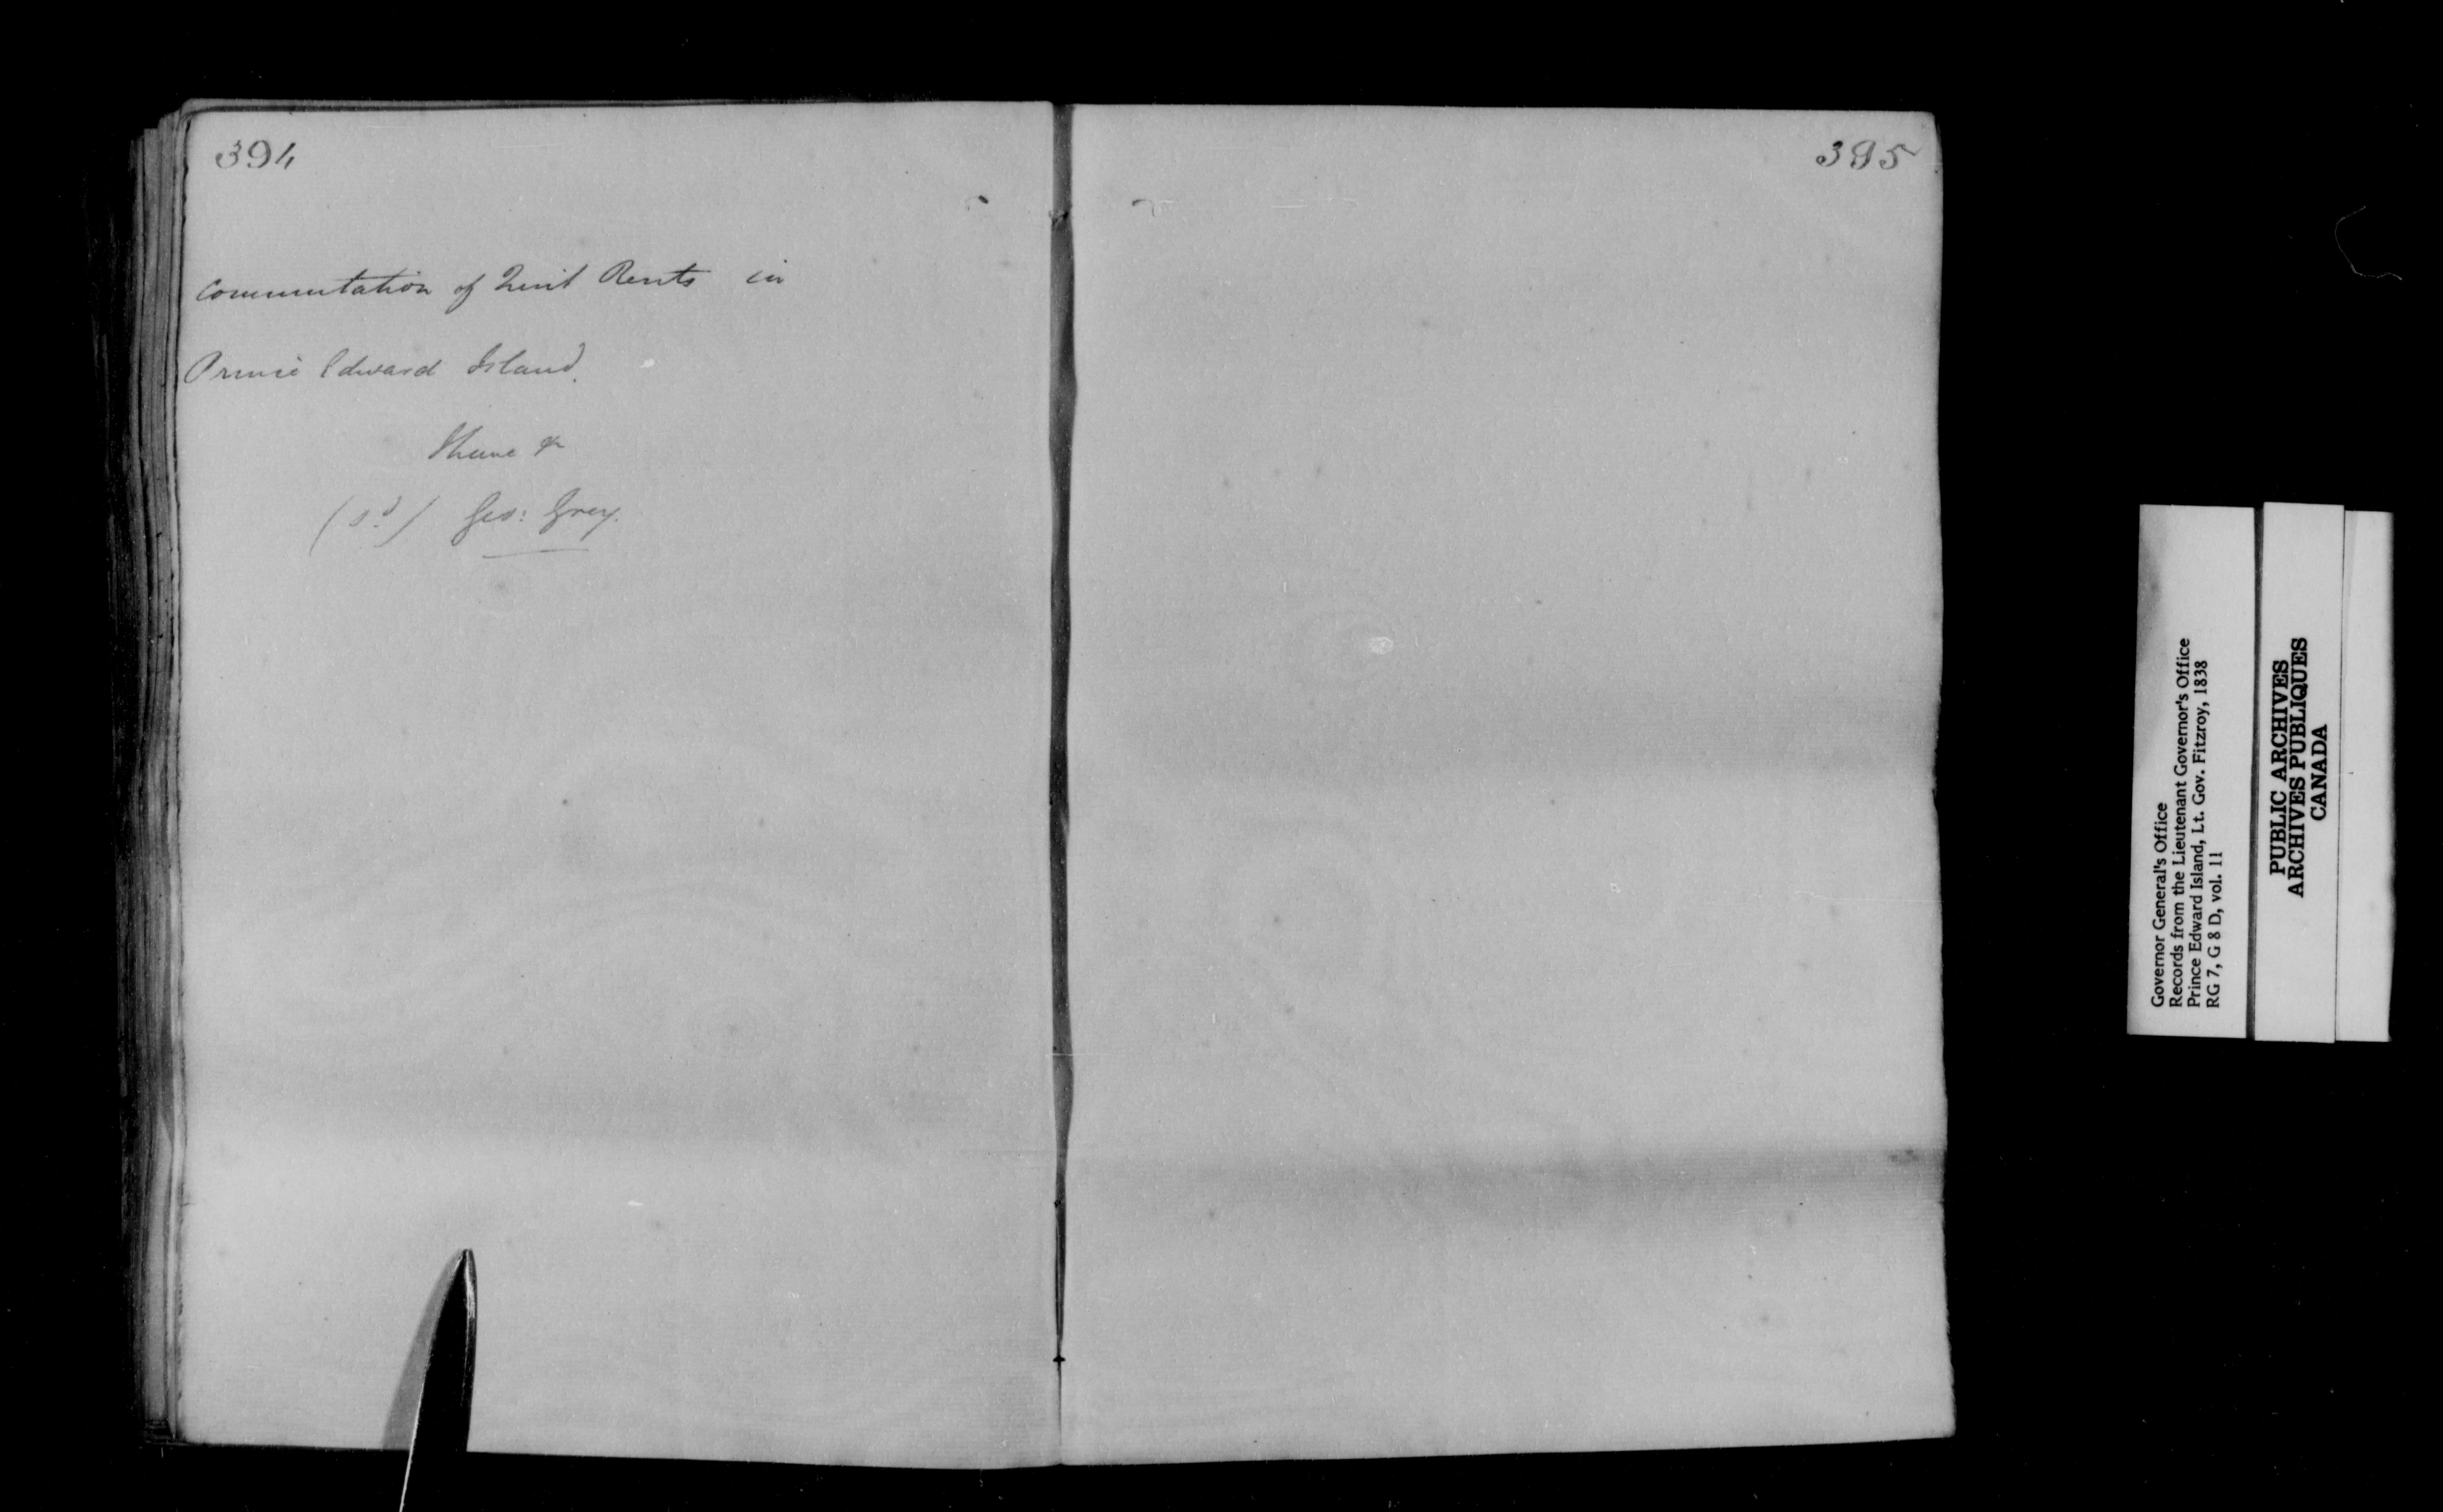 394
Commutation of Quit Rents in
Prince Edward Island.
I have &c
(sd) Geo: Grey.
395
Governor General's Office
Records from the Lieutenant Governor's Office
Prince Edward Island, Lt. Gov. Fitzroy, 1838
RG 7, G 8 D, vol. 11
PUBLIC ARCHIVES
ARCHIVES PUBLIQUES
CANADA